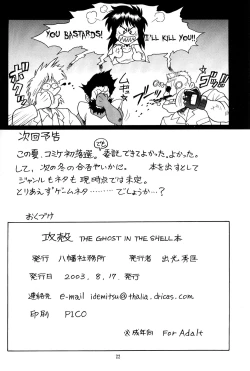 YOU BASTARDS!
I'LL KILL YOU!!
ボグッ
ムギュ
次回予告
この夏、コミケ初落選。委託できてよかった。よかった。
して、次の冬の合否やいかに。 本を出すとして
ジャンルもネタも現時点では未定。
とりあえずゲームネタ………でしょうか…?
おくづけ
攻殻 THE GHOST IN THE SHELL本
発行 八幡社務所 発行者 出光秀匡
発行日 2003.8.17.発行
連絡先 e-mail idemitsu@thalia.dricas.com
印刷 PICO
※成年向 For Adalt
22